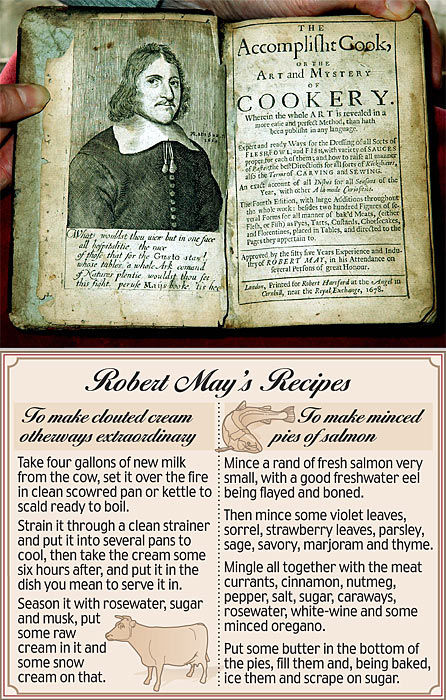 What! wouldst thou view but in one face
all hospitalitie, the race
of those that for the Gusto stand,
whose tables a whole Ark comand
of Natures plentie wouldst thou see
this sight, peruse Mais booke, tis hee
THE
Accomplisht Cook,
OR THE
ART and MYSTERY
OF
COOKERY.
Wherein the whole ART is revealed in a
more easie and perfect Method, than hath
been publisht in any language.
Expert and ready Ways for the Dressing of all Sorts of
FLESH, FOWL, and FISH, with variety of SAUCES
proper for each of them; and how to raise all manner
of Pastes; the best Directions for all sorts of Kickshaws,
also the Terms of CARVING and SEWING.
An exact account of all Dishes for all Seasons of the
Year, with other A-la-mode Curiosities.
The Fourth Edition, with large Additions throughout
the whole work: besides two hundred Figures of se-
veral Forms for all manner of bak'd Meats, (either
Flesh, or Fish) as Pyes, Tarts, Custards, Cheesecakes,
and Florentines, placed in Tables, and directed to the
Pages they appertain to.
Approved by the fifty five Years Experience and Indu-
stry of ROBERT MAY, in his Attendance on
several Persons of great Honour.
London, Printed for Robert Hartford at the Angel in
Cornhill, near the Royal Exchange, 1678.
Robert May's Recipes
To make clouted cream
otherways extraordinary
Take four gallons of new milk
from the cow, set it over the fire
in clean scowred pan or kettle to
scald ready to boil.
Strain it through a clean strainer
and put it into several pans to
cool, then take the cream some
six hours after, and put it in the
dish you mean to serve it in.
Season it with rosewater, sugar
and musk, put
some raw
cream in it and
some snow
cream on that.
To make minced
pies of salmon
Mince a rand of fresh salmon very
small, with a good freshwater eel
being flayed and boned.
Then mince some violet leaves,
sorrel, strawberry leaves, parsley,
sage, savory, marjoram and thyme.
Mingle all together with the meat
currants, cinnamon, nutmeg,
pepper, salt, sugar, caraways,
rosewater, white-wine and some
minced oregano.
Put some butter in the bottom of
the pies, fill them and, being baked,
ice them and scrape on sugar.